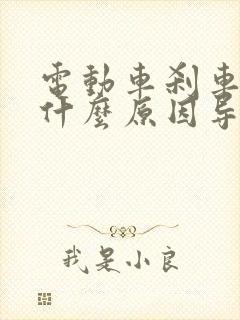 電動車剎車
什麼原因导
我是小良